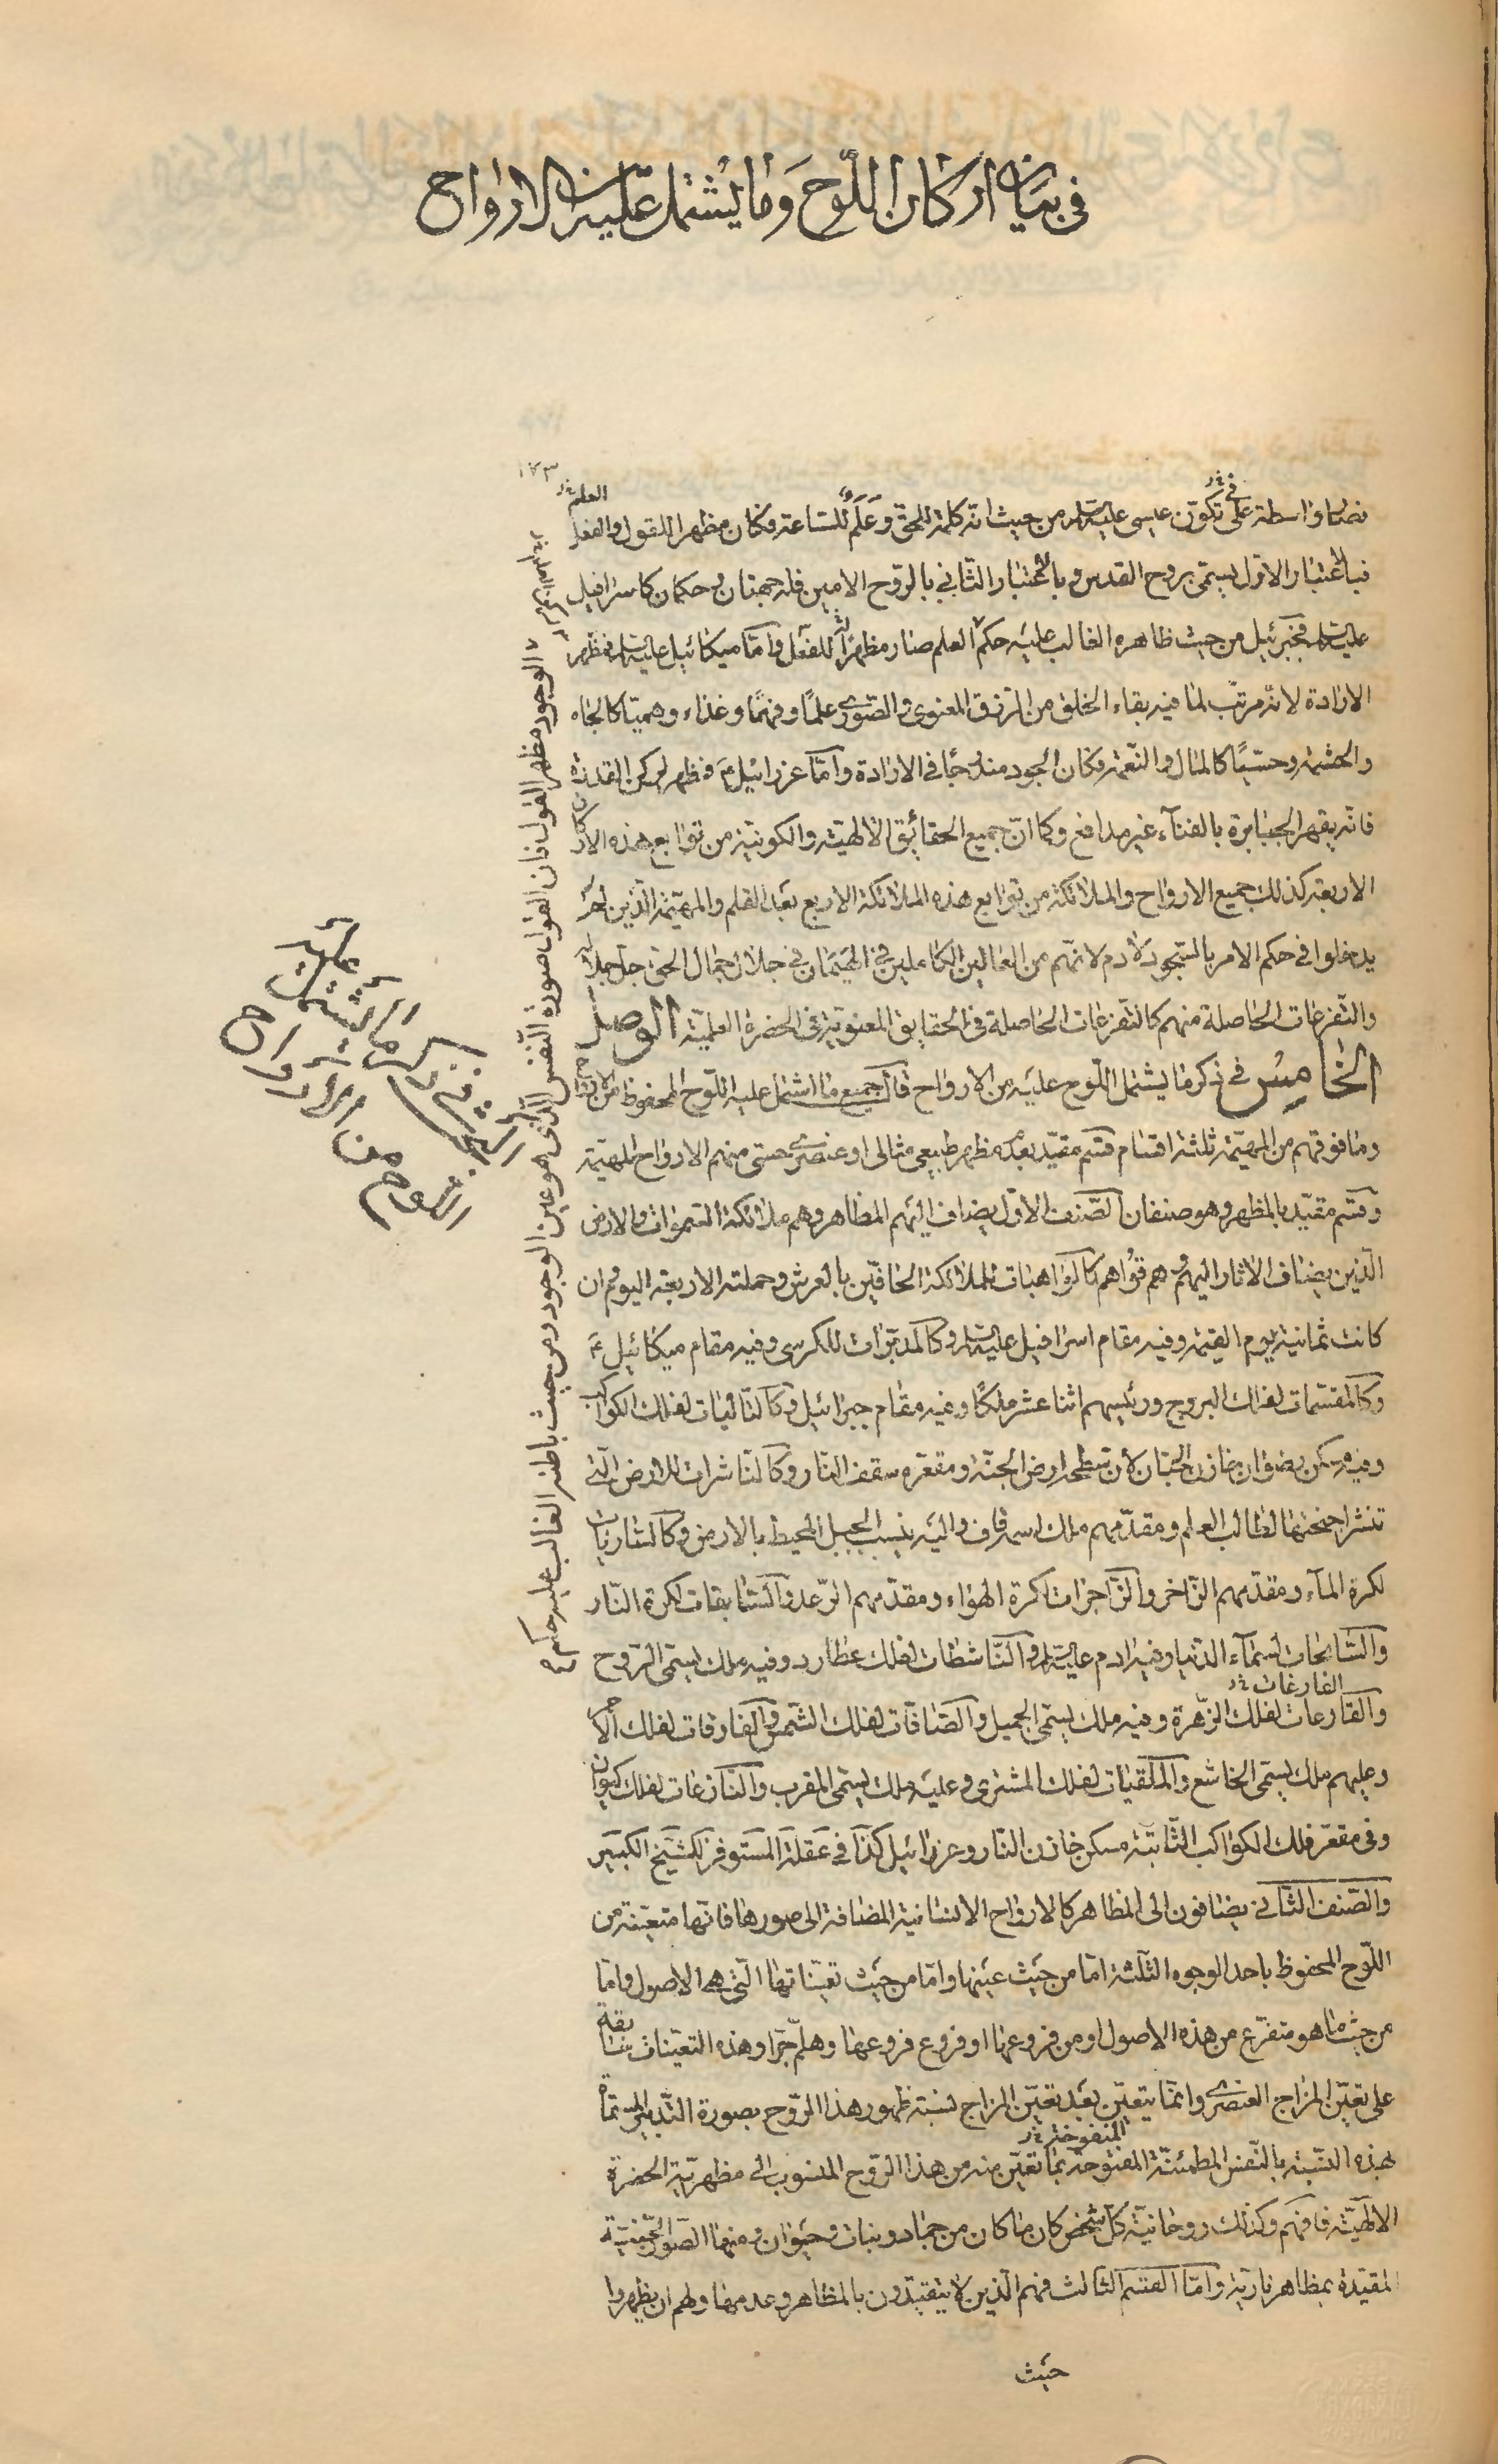 في بيان اركان اللوح وما يشتمل عليه من الارواح
١٧٣
فصار واسطة على تكوّن عيسى عليه السلام من حيث انّه كلمة للحق وعَلَمٌ للساعة فكان مظهرا للقول والفعل
في نخ
العلم نخ
فبالاعتبار الاوّل يسمّى بروح القدس وبالاعتبار الثاني بالروح الامين فله جهتان وحكمان كاسرافيل
عليه السلام فجبرئيل من حيث ظاهره الغالب عليه حكم العلم صار مظهرا للفعل وامّا ميكائيل عليه السلام فمظهر
الارادة لانّه مرتّب لما فيه بقاء الخلق من الرزق المعنوى والصورى علمًا وفهمًا وغذاء وهميّا كالجاه
والحشمة وحسّيًا كالمال والنعمة فكان الجود مندرجًا في الارادة وامّا عزرائيل عَ فمظهر لركن القدرة
فانّه يقهر الجبابرة بالفناء غير مدافع وكما انّ جميع الحقائق الالهيّة والكونيّة من توابع هذه الاركان
الاربعة كذلك جميع الارواح والملائكة من توابع هذه الملائكة الاربع بعد القلم والمهيّمة الّذين لم
يدخلوا في حكم الامر بالسجود لادم لانّهم من العالين الكاملين في الهيمان في جلال جمال الحق جلّ جلاله
والتفرعات الحاصلة منهم كالتفرعات الحاصلة في الحقايق المعنوية في الحضرة العلميّة الوصل
الخامس في ذكر ما يشتمل اللوح عليه من الارواح فان جميع ما اشتمل عليه اللوح المحفوظ من الارواح
وما فوقهم من المهيّمة ثلثة اقسام قسم مقيّد بعدم مظهر طبيعى مثالى او عنصرى حسّى منهم الارواح المهيّمة
وقسم مقيّد بالمظهر وهو صنفان الصّنف الاوّل يضاف اليهم المظاهر وهم ملائكة السموات والارض
الّذين يضاف الاثار اليهم وهم قواهم كالواهبات للملائكة الحافّين بالعرش وحملته الاربعة اليوم وان
كانت ثمانية يوم القيمة وفيه مقام اسرافيل عليه السلام وكالمدبّرات للكرسى وفيه مقام ميكائيل عَ
وكالمقسّمات لفلك البروج ورئيسهم اثنا عشر ملكًا وفيه مقام جبرائيل وكالتاليات لفلك الكواكب
وفيه مسكن رضوان خازن الجنان لأن سطحه ارض الجنّة ومقعّره سقف النار وكالنّاشرات للارض الّتى
تنشر اجنحتها لطالب العلم ومقدّمهم ملك اسمه قاف واليه ينسب الجبل المحيط بالارض وكالساريات
لكرة الماء ومقدّمهم الزّاخر والزّاجرات لكرة الهواء ومقدّمهم الرّعد والسّابقات لكرة النّار
والسّابحات لسماء الدنيا وفيه ادم عليه السلام والنّاشطات لفلك عطارد وفيه ملك يسمّى الرّوح
الفارغات نخ
والقارعات لفلك الزّهرة وفيه ملك يسمّى الجميل والصّافّات لفلك الشّمس والفارقات لفلك الاحمر
وعليهم ملك يسمّى الخاشع والملقيات لفلك المشترى وعليه ملك يسمّى المقرب والنّازعات لفلك كيوان
وفى مقعّر فلك الكواكب الثّابتة مسكن خازن النار وعزرائيل كذا في عقلة المستوفز للشيخ الكبير
والصّنف الثّانى يضافون الى المظاهر كالارواح الانسانية المضافة الى صورها فانّها متعيّنة من
اللّوح المحفوظ باحد الوجوه الثّلثة امّا من حيث عينها وامّا من حيث تعيّناتها الّتى هى الاصول وامّا
من حيث ما هو متفرّع من هذه الاصول او من فروعها او فروع فروعها وهلمّ جرّا وهذه التعيّنات سابقة
على تعيّن المزاج العنصرى وانّما يتعيّن بعد تعيّن المزاج نسبة ظهور هذا الرّوح بصورة التّدبير المسمّاة
المنفوخة نخ
بهذه النّسبة بالنّفس المطمئنّة المفتوحة بما تعيّن منه من هذا الرّوح المنسوب الى مظهريّة الحضرة
الالهيّة فافهم وكذلك روحانيّة كلّ شخص كان ما كان من جماد ونبات وحيوان ومنها الصّور الجنّيّة
المقيّدة بمظاهر ناريّة وامّا القسم الثّالث فهم الّذين لا يتقيّدون بالمظاهر وعدمها ولهم ان يظهروا
حيث
الوجود مظهر القول فان القول صورة النّفس الذى هو عين الوجود ومن حيث باطنه الغالب عليه حكم
الخامس في ذكر ما يشتمل عليه
اللوح من الارواح